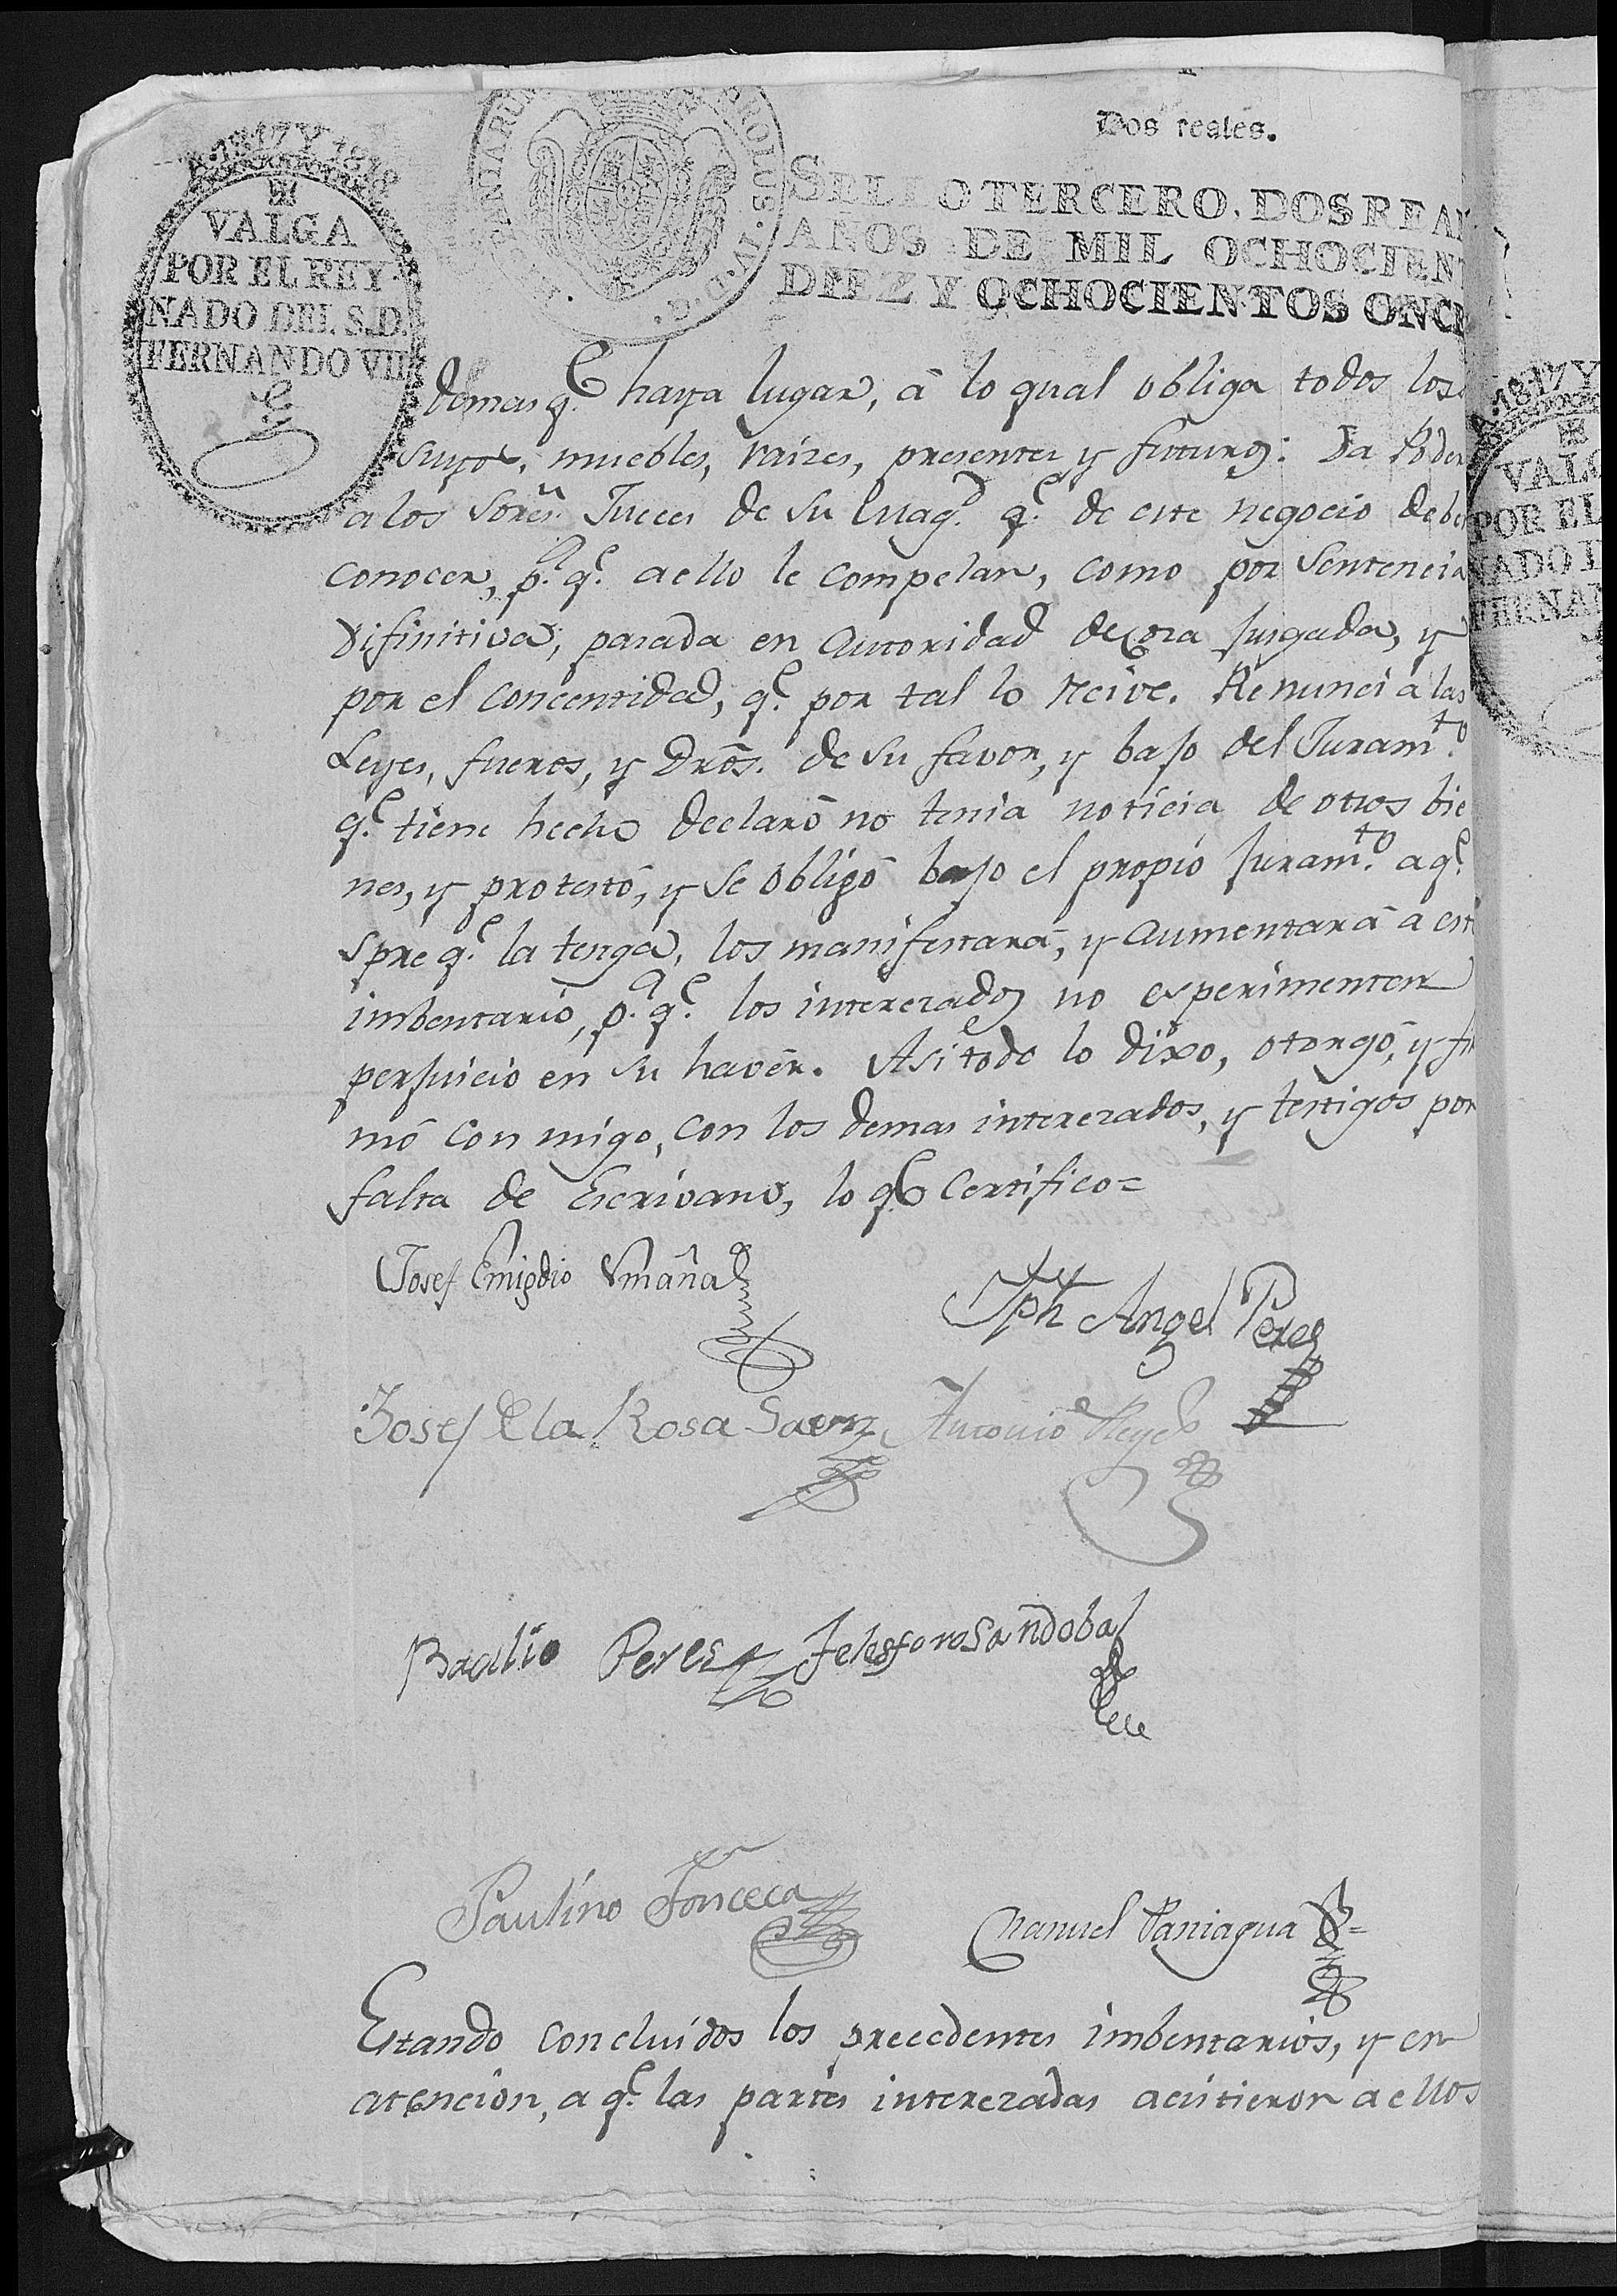 Dos reales.
SELLO TERCERO. DOS REA
AÑOS DE MIL OCHOCIEN
DIEZ Y OCHOCIENTOS ONCE
1817 Y 18
VALGA
POR EL REY
NADO DEL S.D.
FERNANDO VII
demas q.e haya lugar, â lo qual obliga todos los
suyos, muebles, raizes, presentes y futuros: Da Poder
a los Sores. Jueces de su Mag.d q.e de este negocio debe
conocer, p.a q.e a ello le compelan, como por Sentencia
difinitiva, pasada en autoridad de cosa jusgada, y
por el concentida, q.e por tal lo recive. Renunci a las
Leyes, fueros, y Dros. de su favor, y bajo del Juram.to
q.e tiene hecho declarò no tenia noticia de otros bie
nes, y protestò, y se obligò bajo el propio juram.to a q.e
spre q.e la tenga, los manifestarà, y aumentarà a est
imbentario, p.a q.e los interezados no experimenten
perjuicio en su havèr. Asi todo lo dixo, otorgò, y fir
mò con migo, con los demas interezados, y testigos por
falta de Escrivano, lo q.e Certifico=
Josef Emigdio Umaña
Jph Angel Perez
Josef de la Rosa Saenz
Antonio Reyes
Basilio Peres
Telesforo Sandobal
Paulino Fonceca
Manuel Paniagua
Estando concluidos los precedentes imbentarios, y en
atencion, a q.e las partes interezadas acistieron a ellos
1817 Y
VALG
POR EL
NADO D
FERNAN